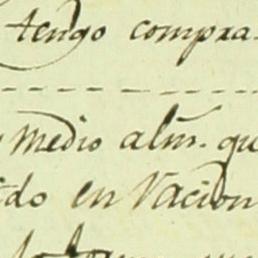 tengo compra
medio alm. qu
do en Vacion